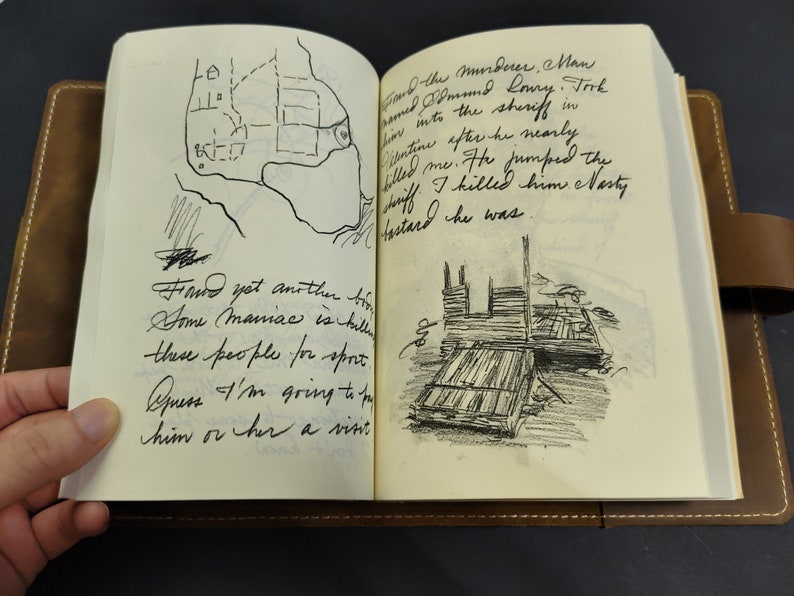 Found yet another
Some maniac is
these people for sport.
Guess I'm going to
him or her a visit
Found the murderer. Man
named Edmund Lowry. Took
him into the sheriff in
Valentine after he nearly
killed me. He jumped the
sheriff. I killed him. Nasty
bastard he was.